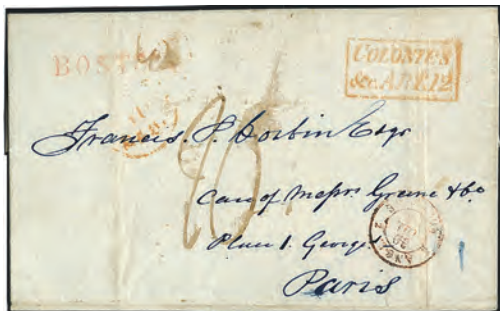 BOSTON
COLONIES
&c. ART. 12
Francis. P. Corbin Esqr
Care of Messrs Greene & Co
Place St. George
Paris